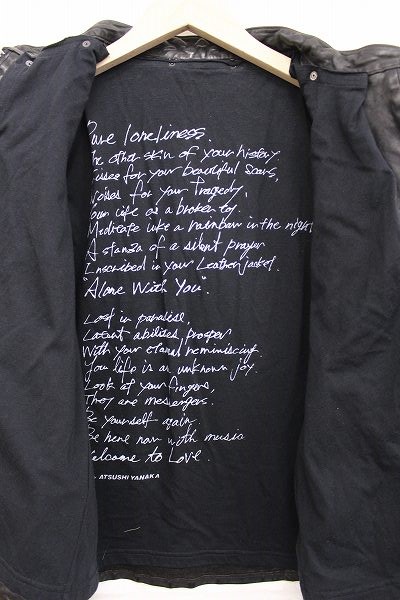 Pure loneliness.
The other skin of your history
Kisses for your beautiful scars,
Noises for your tragedy,
Your life as a broken toy.
Meditate like a rainbow in the night
A stanza of a silent prayer
Inscribed in your Leather jacket.
"Alone With You".
Lost in paradise.
Latent abilities prosper
With your eternal reminiscing.
You life is an unknown joy.
Look at your fingers
They are messengers.
Be yourself again.
Be here now with music
Welcome to Love.
ATSUSHI YANAKA